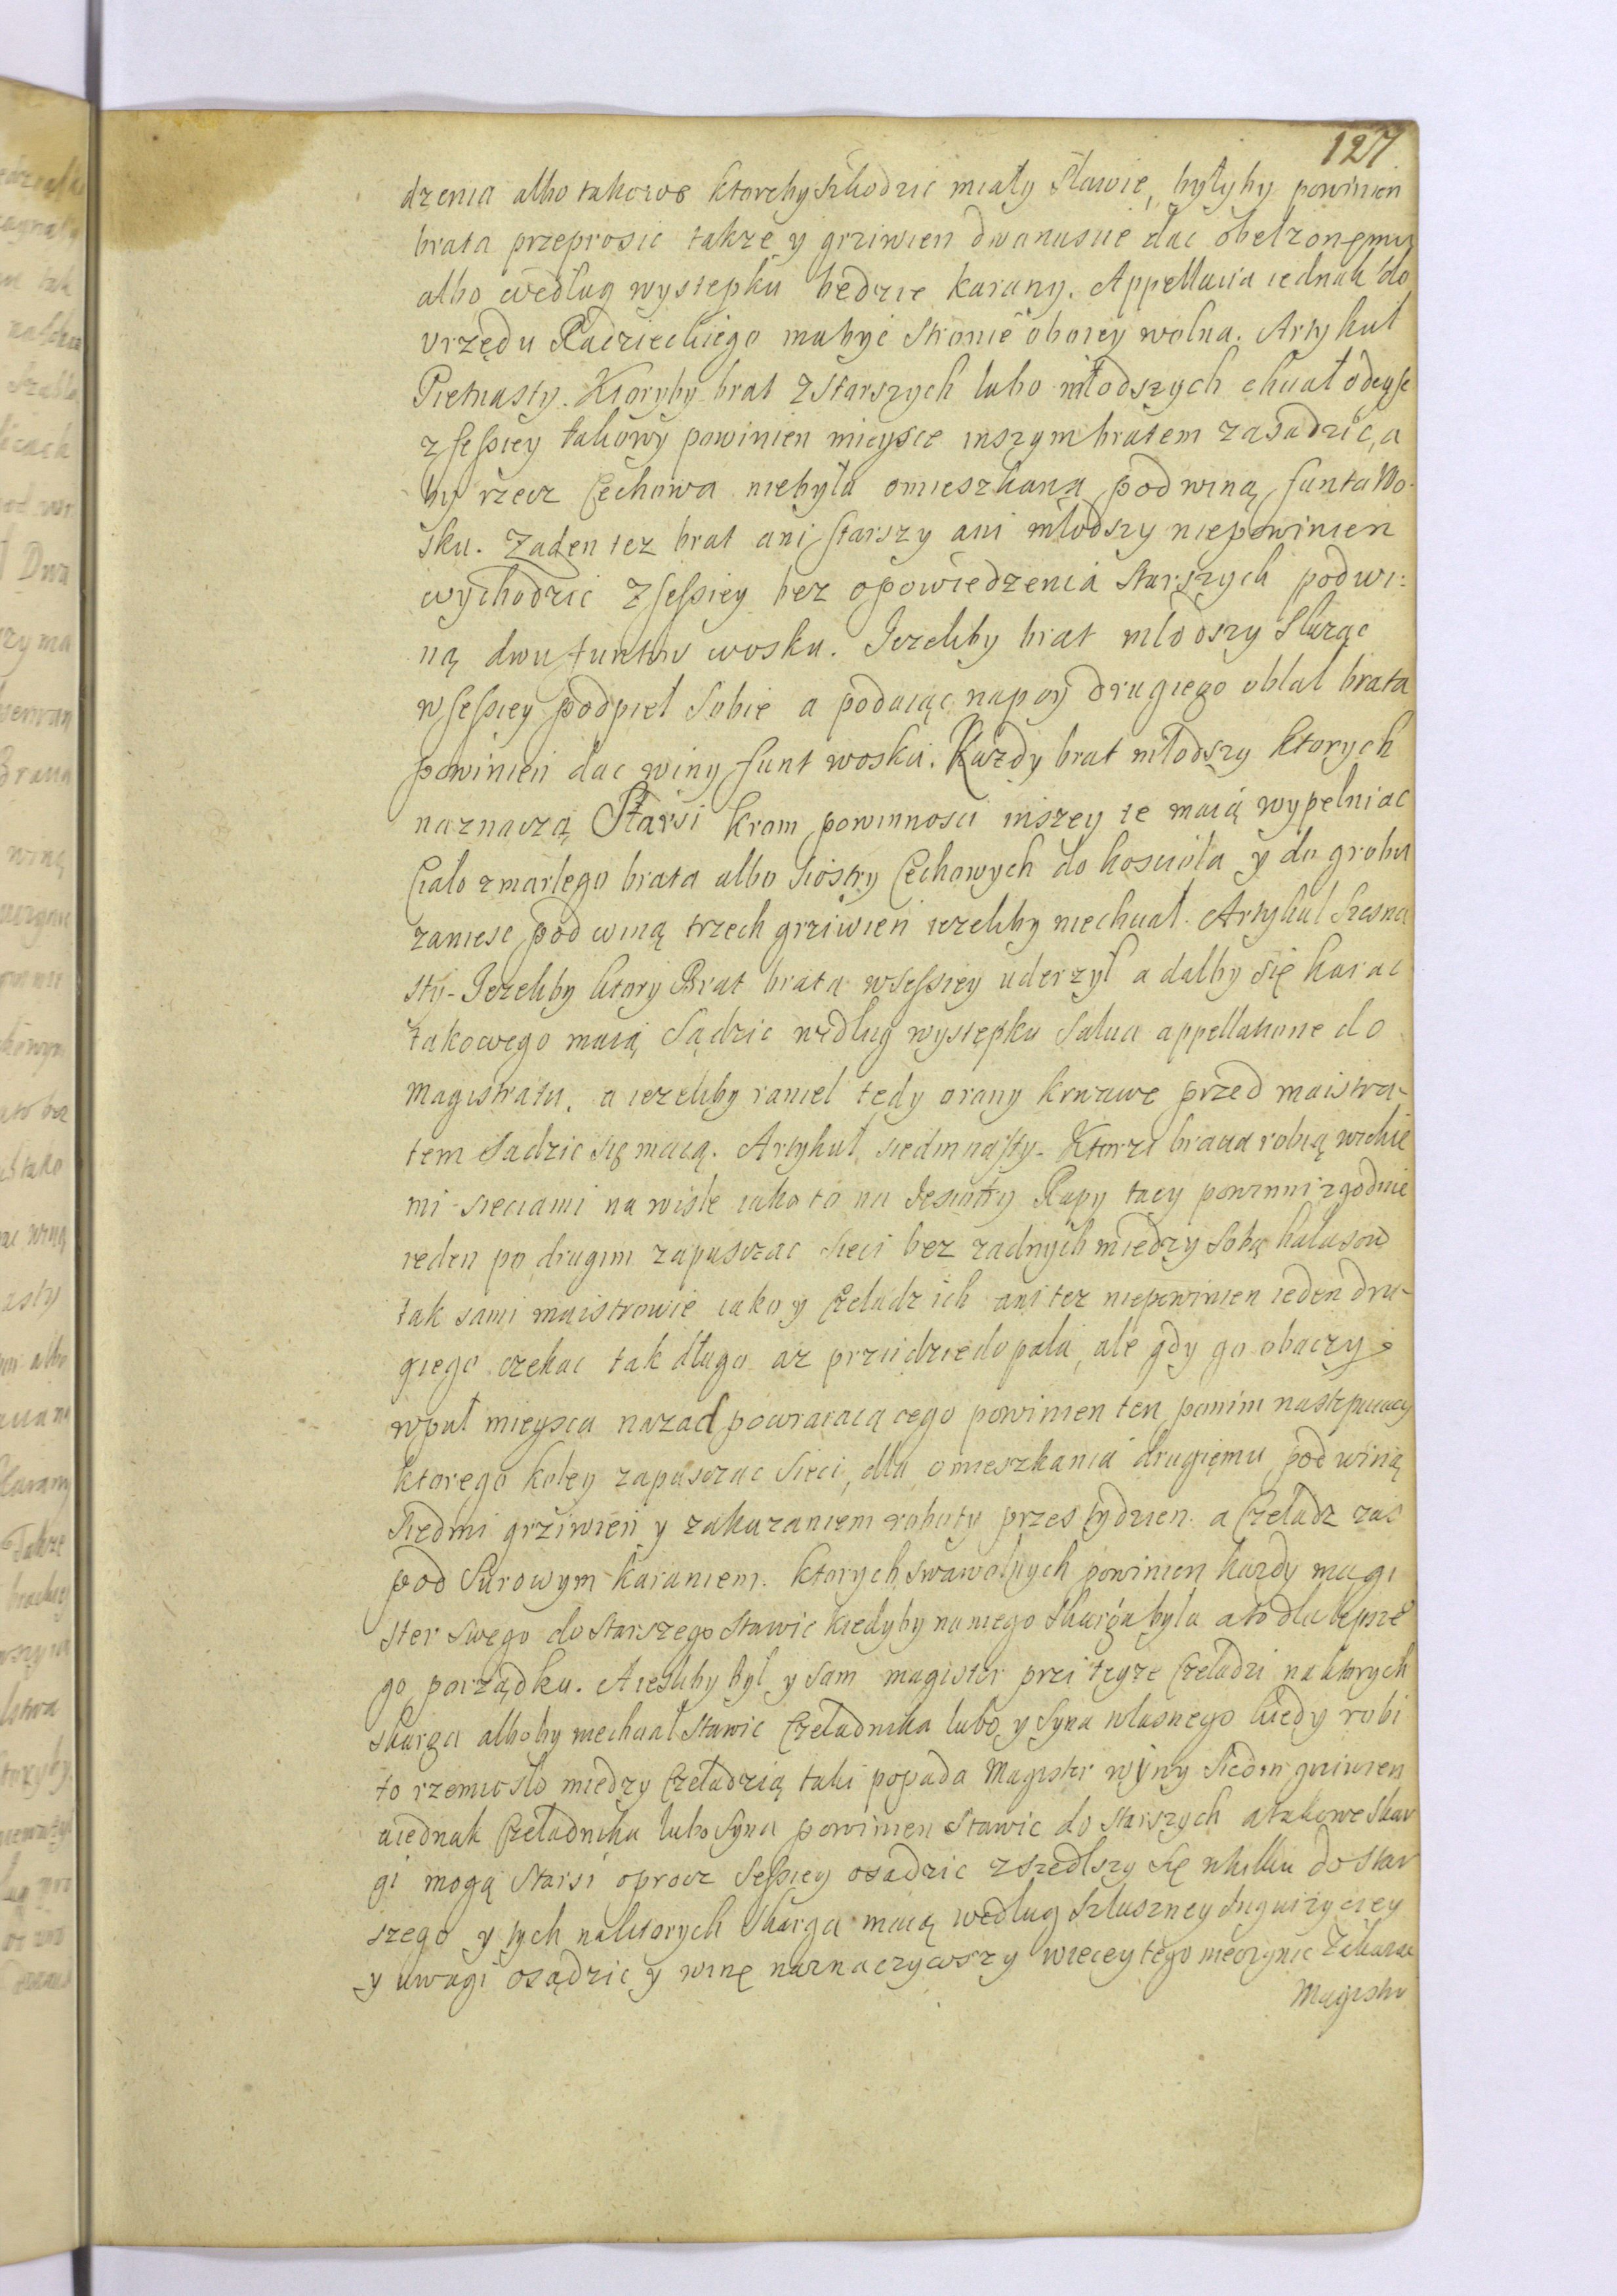 127
dzenia albo takowe ktoreby szkodzic miały sławie, byłyby powinien
brata przeprosic także y grziwien dwanascie dac obelzonemu
albo według wystepku bedzie karany. Appellacia iednak do
vrzędu Radzieckiego ma byc stronie oboiey wolna. Artykuł
Pietnasty. Ktoryby brat z starszych lubo młodszych chciał odeysc
z sessiey takowy powinien mieysce inszym bratem zasadzić, a
by rzecz Cechowa niebyła omieszkana pod winą funta Wo-
sku. Zaden tez brat ani starszy ani młodszy niepowinien
wychodzic z sessiey bez opowiedzenia starszych pod wi:
ną dwu funtow wosku. Jezeliby brat młodszy służąc
w sessiey podpieł sobie a podaiąc napoy drugiego oblał brata
powinien dac winy funt wosku. Kazdy brat młodszy ktorych
naznaczą Starsi krom powinnosci inszey te maią wypełniac
Ciało zmarłego brata albo Siostry Cechowych do koscioła y do grobu
zaniesc pod winą trzech grziwien iezeliby niechciał. Artykuł Szesna
sty. Jezeliby ktory Brat brata w sessiey uderzył a dałby się karac
takowego maią Sądzic według występku salua appellatione do
Magistratu, a iezeliby raniel tedy o rany krwawe przed maistra-
tem sadzic się maią. Artykuł siedmnasty. Ktorzi bracia robią wielkie
mi sieciami na wisle iako to na Jesiotry Rapy tacy powinni zgodnie
ieden po drugim zapusczac sieci bez zadnych miedzy sobą hałasow
tak sami maistrowie iako y Czeladz ich ani tez niepowinien ieden dru-
giego czekac tak długo az przidzie do pala, ale gdy go obaczy
w puł mieysca nazad powracaiącego powinien ten po nim nastepuiacy
ktorego koley zapusczac sieci, dla omieszkania drugiemu pod winą
Siedmi grziwien y zakazaniem roboty przes tydzien. a Czeladz zas
pod Surowym karaniem. ktorych swawolnych powinien kazdy magi
ster swego do starszego stawic kiedyby na niego skarga była a to dla lepsze
go porządku. A iesliby był y sam magister przi teyze Czeladzi na ktorych
skarga alboby niechciał stawic Czeladnika lubo y syna własnego kiedy robi
to rzemiosło miedzy Czeladzią taki popada Magister winy Siedm grziwien
a iednak Czeladnika lubo syna powinien stawic do starszych a takowe skar
gi mogą starsi oprocz Sessiey osadzic zszedłszy się w kilku do star
szego y tych na ktorych skarga maią według słuszney Inquizyciey
y uwagi osądzic y winę naznaczywszy wiecey tego nieczynic zakazac
Magistr